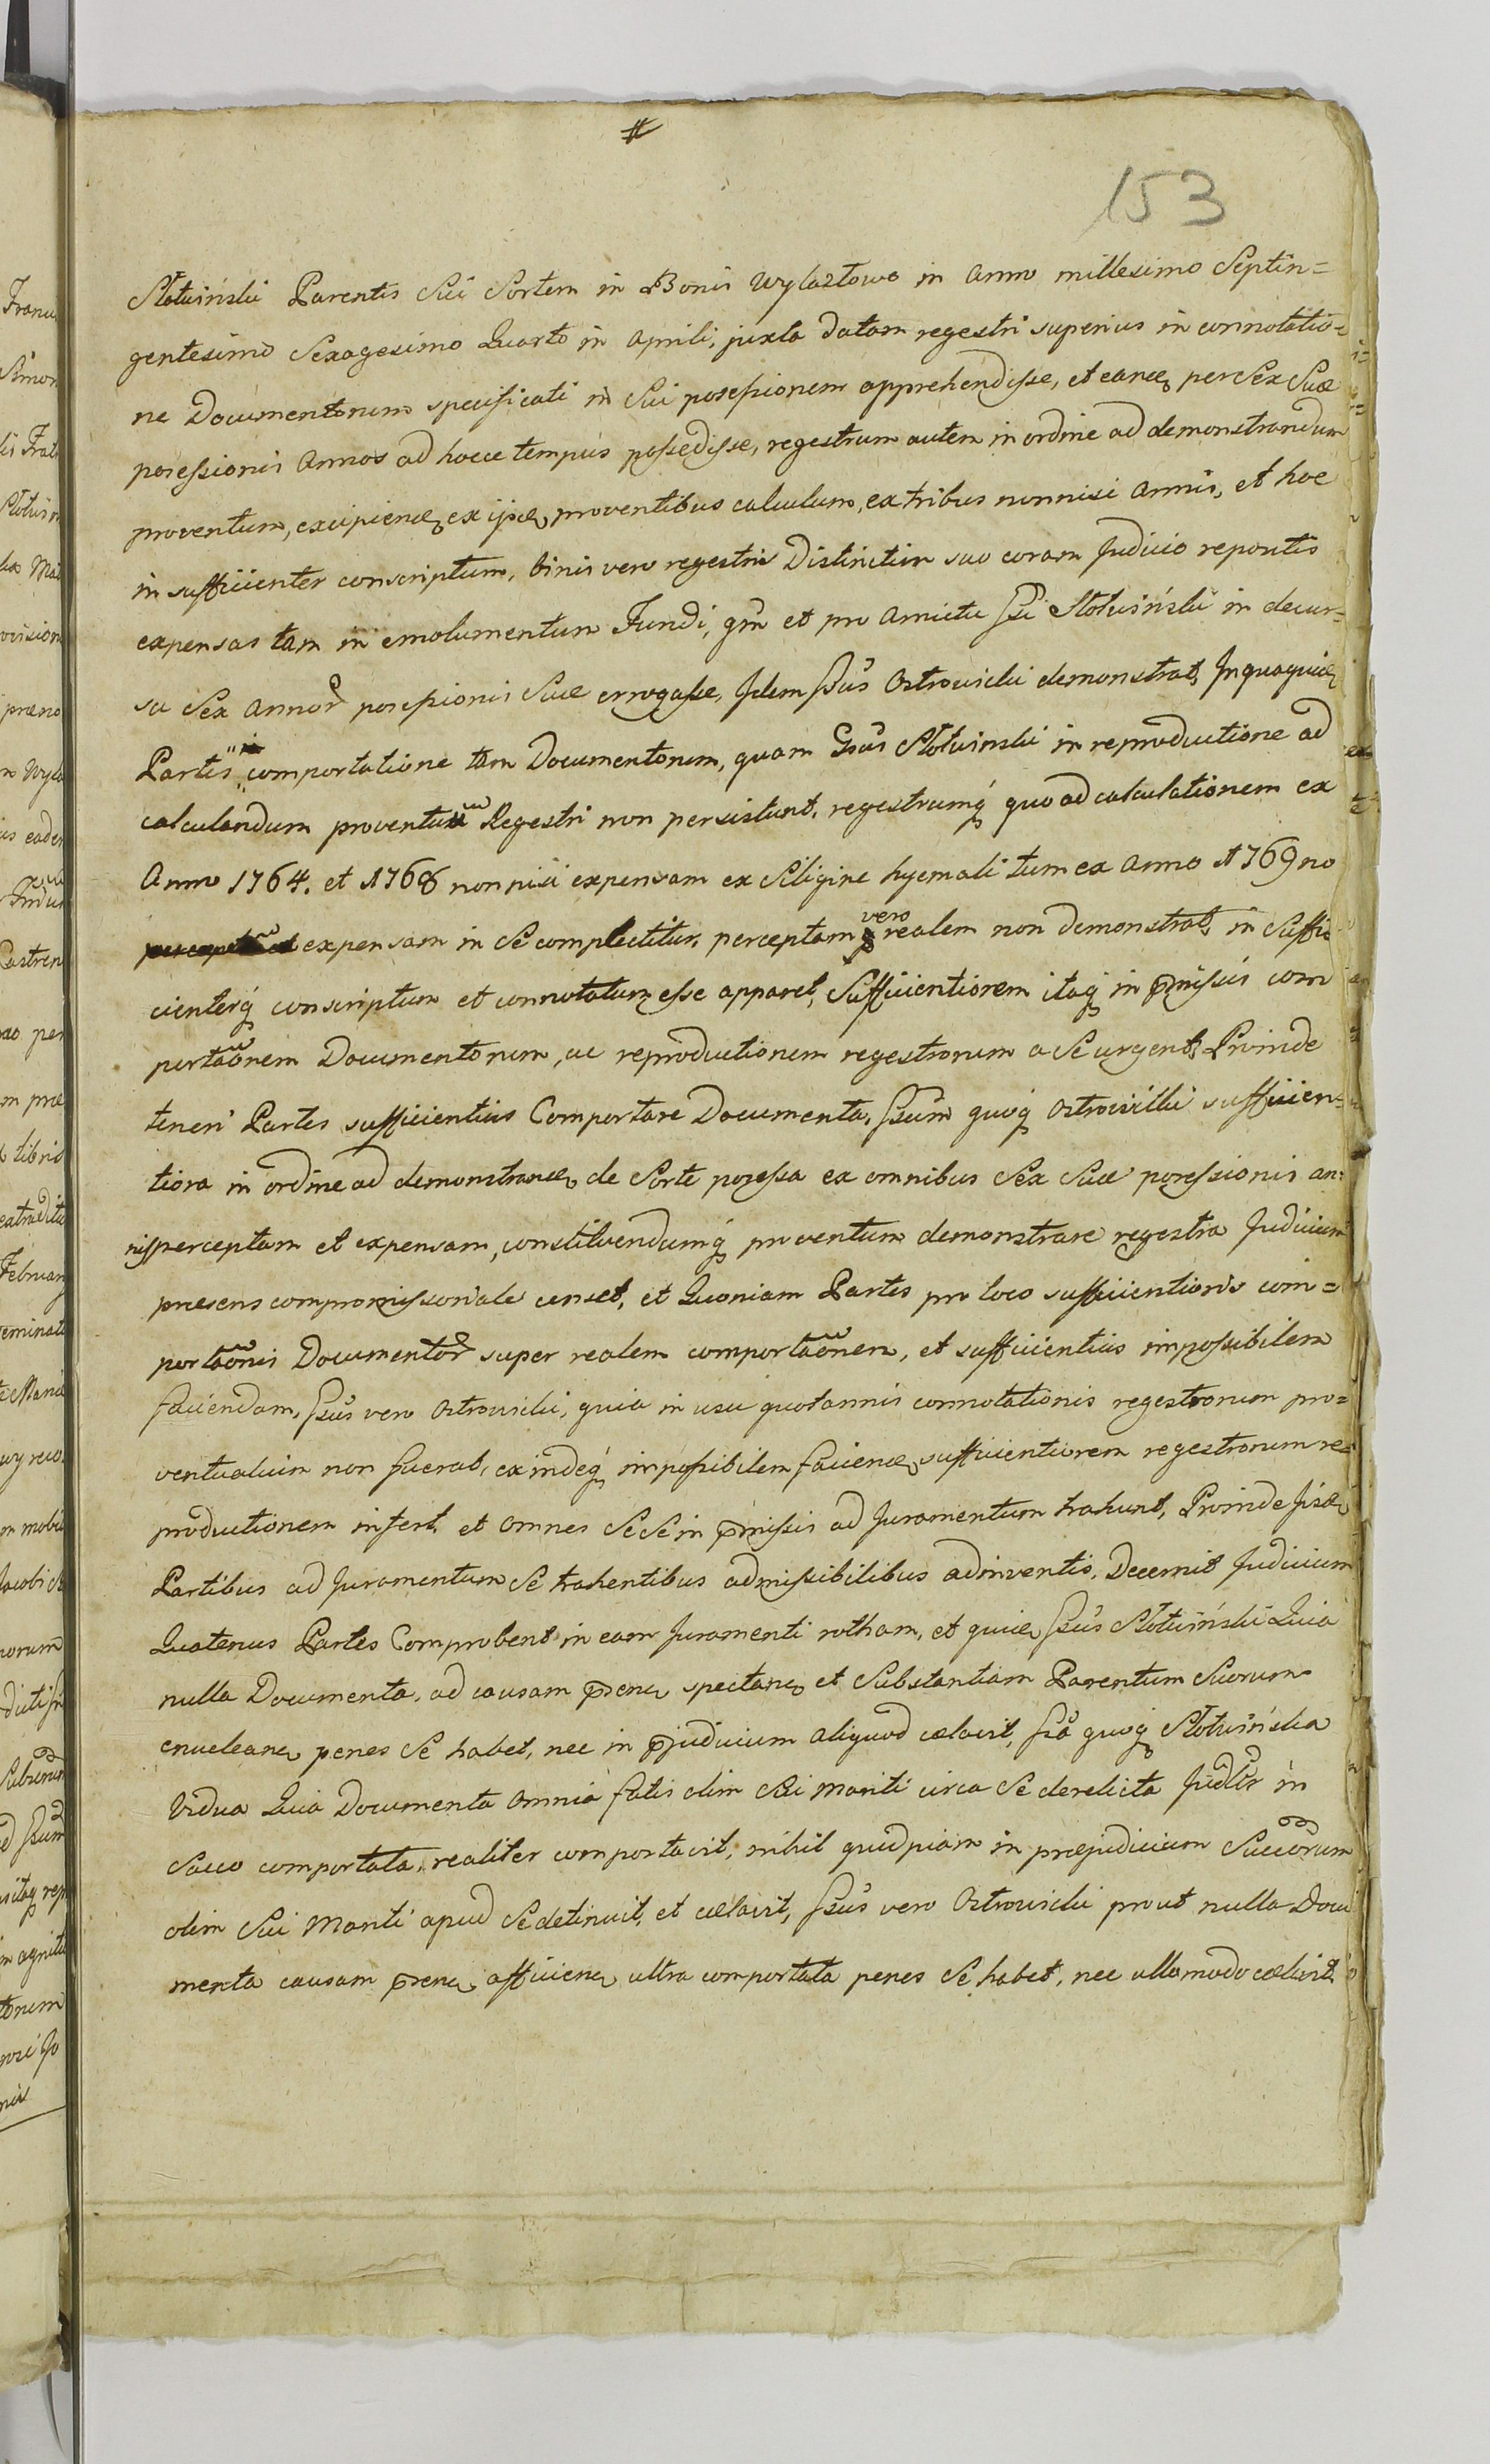 #
153
Słotwiński Parentis Sui Sortem in Bonis Wylaztowo in Anno millesimo Septin=
gentesimo Sexagesimo Quarto in Aprili, juxta datam regestri superius in connotatio=
ne Documentorum specificati in Sui possessionem apprehendisse, et eandꝫ per Sex Suæ
possessionis Annos ad hocce tempus possedisse, regestrum autem in ordine ad demonstrandum
proventum, excipiendꝫ ex ijsdꝫ proventibus calculum, ex tribus nonnisi Annis, et hoc
in sufficienter conscriptum, binis vero regestris Distinctim suo coram Judicio repositis
expensas tam in emolumentum Fundi, qm̃ et pro Amictu Gsi Słotwiński in decur=
su Sex Annor̃ possessionis Suæ errogasse, Idem Gsus Ostrowicki demonstrat, In quaquidꝫ
Partis comportatione tam Documentorum, quam Gsus Słotwinski in reproductione ad
calculandum proventum Regestri non persistunt, regestrumq́ꝫ quo ad calculationem ex
Anno 1764. et 1768 nonnisi expensam ex Siligine hyemali tum ex Anno 1769no
expensam in Se complectitur, perceptam vero realem non demonstrat, in Suffi=
cienterq́ꝫ conscriptum et connotatum esse apparet, Sufficientiorem itaqꝫ in p̃missis com
portãonem Documentorum, ac reproductionem regestrorum a Se urgent, Proinde
teneri Partes sufficientius Comportare Documenta, Gsum quoqꝫ Ostrowicki sufficien=
tiora in ordine ad demonstrandꝫ de Sorte possessa ex omnibus Sex Suæ possessionis an=
nis perceptam et expensam, constituendumq́ꝫ proventum demonstrare regestra Judicium
præsens compromissoriale censet, et Quoniam Partes pro loco sufficientioris com=
portãonis Documentor̃ super realem comportãonem, et sufficientius impossibilem
faciendam, Gsus vero Ostrowicki, quia in usu quotannis connotationis regestrorum pro=
ventualium non fuerat, exindeq́ꝫ impossibilem faciendꝫ sufficientiorem regestrorum re=
productionem infert, et Omnes Sese in p̃missis ad Juramentum trahunt, Proinde Iisdꝫ
Partibus ad Juramentum Se trahentibus admissibilibus adinventis, Decernit Judicium
Quatenus Partes Comprobent in eam Juramenti rotham, et quidꝫ Gsus Słotwiński Quia
nulla Documenta, ad causam p̃sentꝫ spectantꝫ et Substantiam Parentum Suorum
enucleantꝫ penes Se habet, nec in p̃judicium aliquod celavit, Gsa quoqꝫ Słotwińska
Vidua Quia Documenta Omnia fatis olim Sui Mariti circa Se derelicta Judlr in
Sacco comportata, realiter comportavit, nihil quidpiam in præjudicium Succorum
olim Sui Mariti apud Se detinuit, et celavit, Gsus vero Ostrowicki prout nulla Docu
menta causam p̃sentꝫ afficientꝫ ultra comportata penes Se habet, nec ullomodo celavit